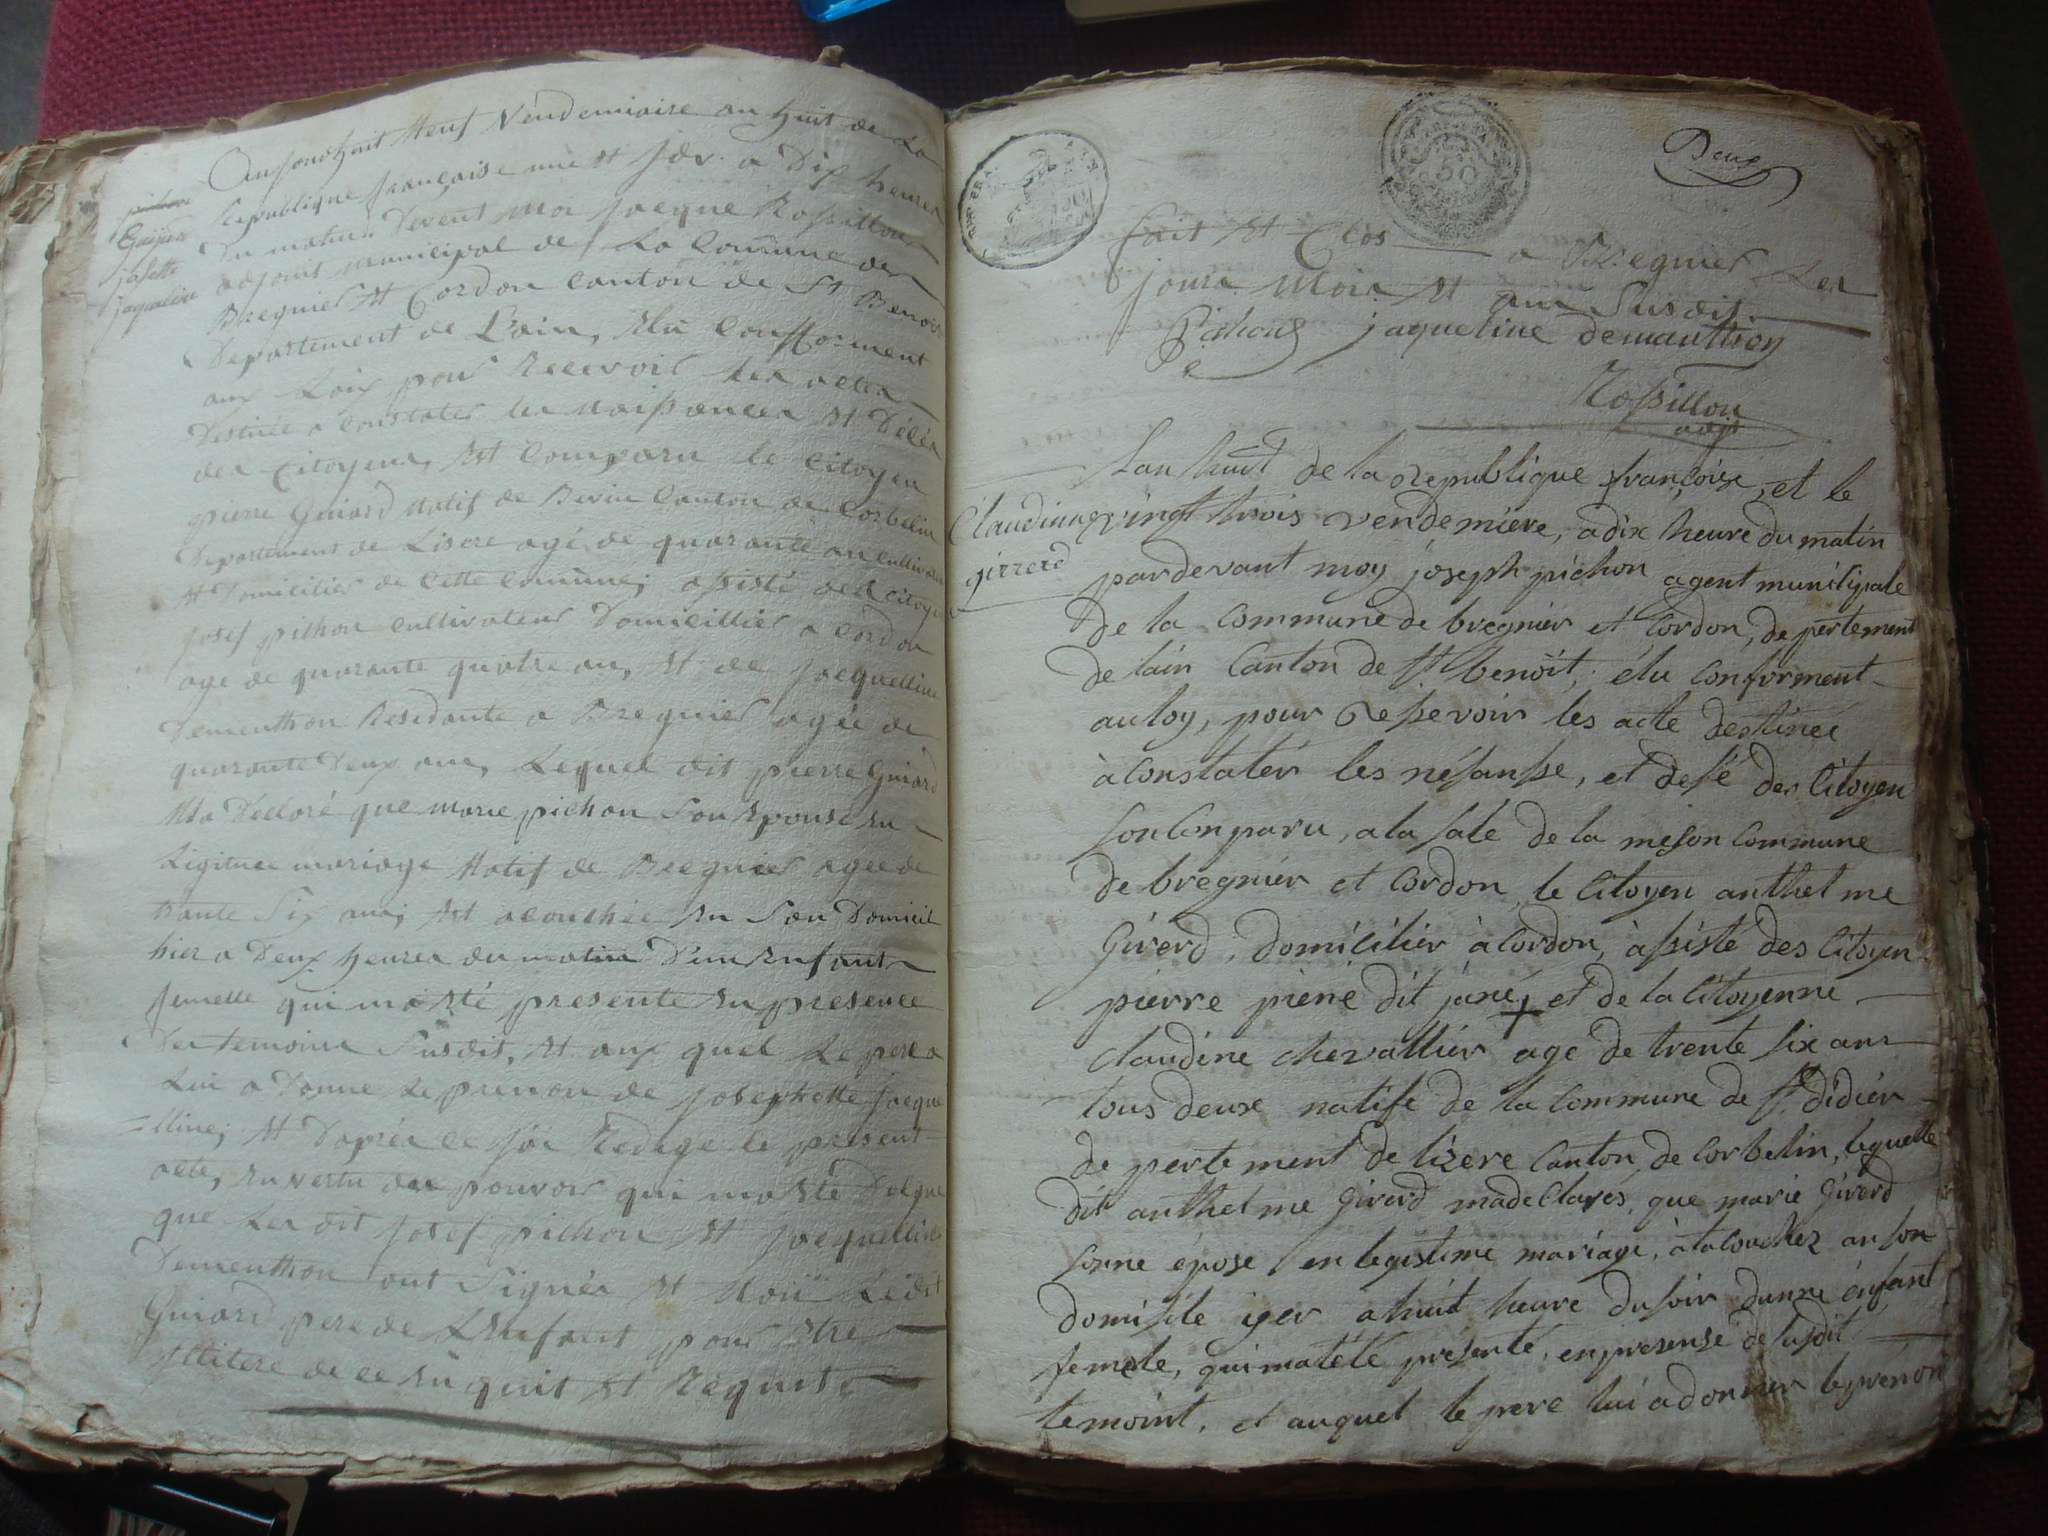 Aujourdhuit Neuf Vendemiaire an huit de La
Republique françaisse une et Jdv. a Dix heures
Du matin Devent Moi Jacque Rossillon
adjoint Municipal de La Comune de
Bregnier et Cordon Canton de St Benoit
Departement de L'ain, Elu Confforment
aux Loix pour Recevoir Les actes
Destinée a Constater les Naissances et Décès
des Citoyens, Est Comparu le Citoyen
pierre Guiard Natif de Canton de Corbelin
Departement de Lisere agé de quarante an Cultivateur
et Domicilier de Cette Comune; assisté de Citoyen
Josef pichon Cultivateur Domicillier a Cordon
age de quarante quatre an, et de Jacquelline
Dementhon Residante a Bregnier agée de
quarante Deux ans, Lequel dit pierre Guiard
Ma Declaré que marie pichon Son Epouse En
Ligitime mariage Natif de Bregnier agée de
Trante Six ans; Est acouchée En Son Domicil
hier a Deux heures du matin D'un Enfant
femelle qui ma Eté presente En presence
Des temoins Susdit, et aux quel Le pere
Lui a Donné Le prenon de Josephette Jacque
=lline; et D'aprés ce J'ai Redigé le present
acte, En vertu des pouvoir qui ma Eté Delegué
que Les dit Josef pichon et Jacquelline
Dementhon ont Signés et Non Ledit
Guiard pere de L'Enfant pour Etre
illitere de ce Enquit et Requise
Guijard
josette
jaqueline
Deux
50
Fait et Clos a Bregnier Les
Jours Mois et an Susdit.
Pichon jaqueline demanthon
Rossillon
adjt
Claudinne
girrerd
Lan huit de la republique françoise, et le
vingt trois vendemiere, a dix heure du matin
pardevant moy joseph pichon agent municipale
de la commune de bregnier et Cordon, de pertement
de lain Canton de St benoit, élu Conforment
au loy, pour resevoir les acte destinée
à Constatér les nésanse, et desé des Citoyen
son Conparu, a la sale de la meson Commune
de bregniér et Cordon le Citoyen anthelme
Girerd, domicilier à Cordon, àsisté des Citoyen
pierre piene dit jané, et de la Citoyenne
Claudine chevalliér age de trente six ans
tous deux natife de la Commune de St didiér
de pertement de lizere Canton de Corbelin, lequelle
dit anthelme Girerd ma declarés, que marie Girerd
sonne épose en legistime mariage, à tacouchez an son
domisile iyer a huit heure du soir dunne énfant
femele, qui ma tété présenté, en presense de susdit
temoint, et auquel le pere lui a donner le prenon